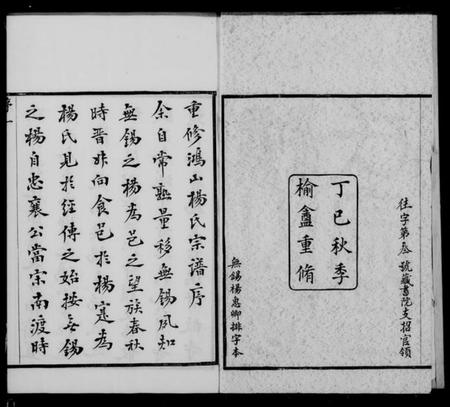 往字第叁號藏書院支招官領
丁巳秋季
榆盦重脩
無錫楊惠卿排字本
重修鴻山楊氏宗譜序
余自常熟量移無錫夙知
無錫之楊為邑之望族春秋
時晉羊舌食邑於楊寔為
楊氏見於經傳之始按無錫
之楊自忠襄公當宋南渡時
序一